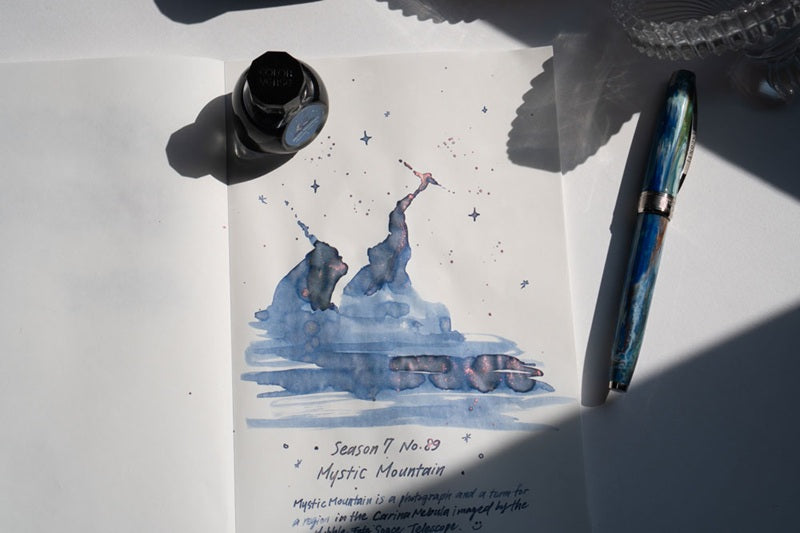 COLOR
VERSE
Season 7 No.89
Mystic Mountain
Mystic Mountain is a photograph and a term for
a region in the Carina Nebula imaged by the
Space Telescope.